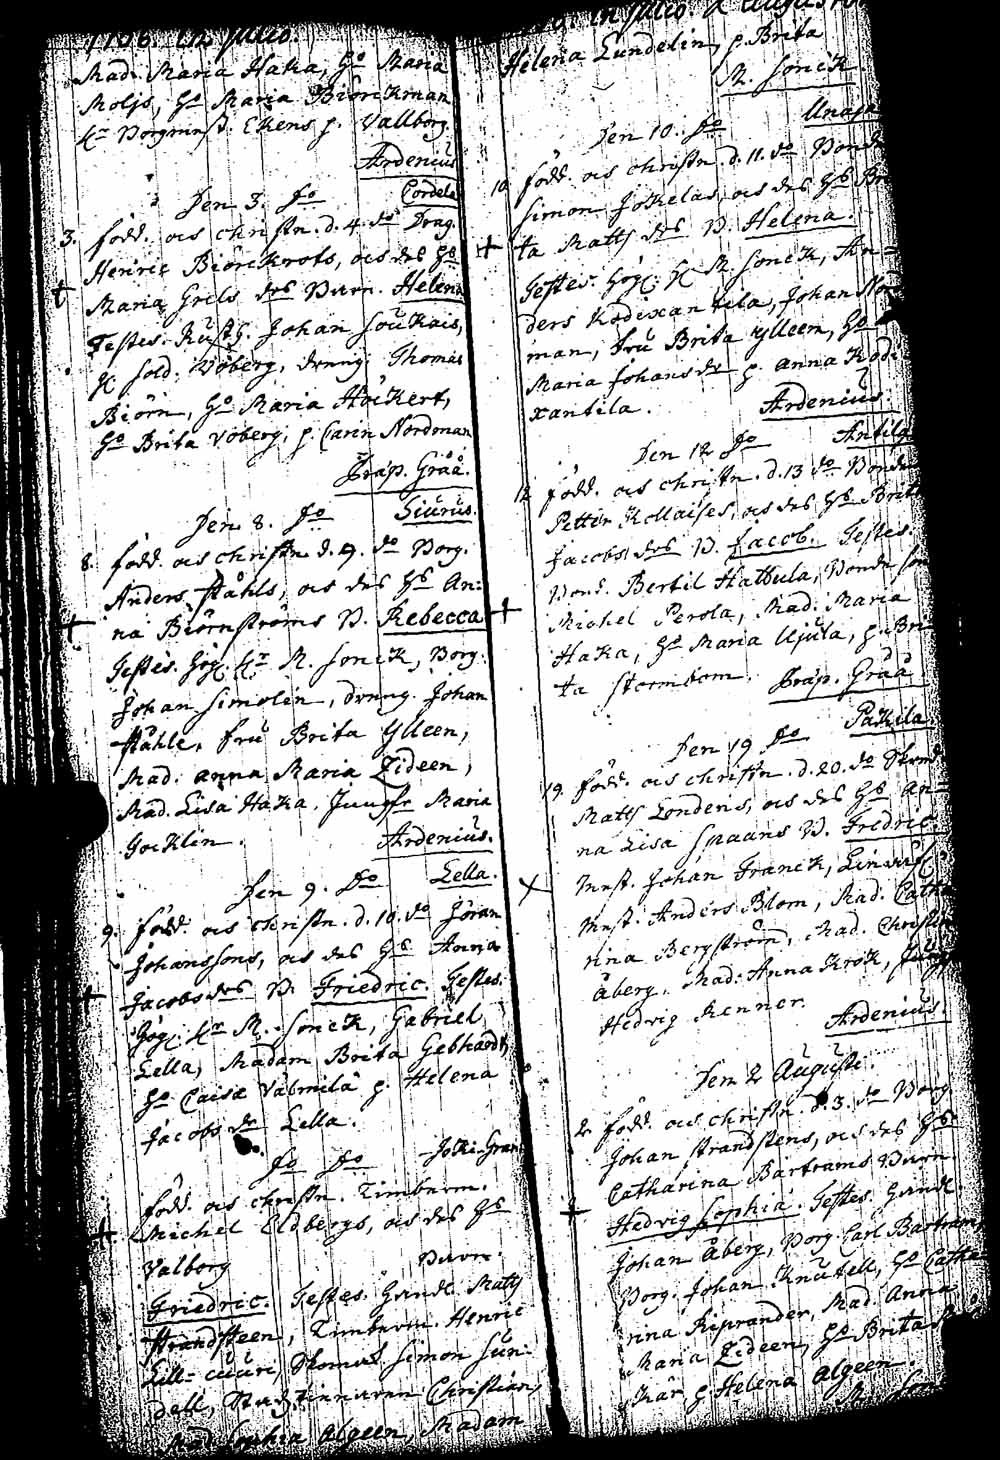 in Julio.
Mad. Maria Haka, Ho Maria
Moljs, Ho Maria Biörckman
Ekens p. Vallborg.
Ardenius
Den 3. do Cordela
3. född. ocs christn. d. 4. do Drag.
Henric Biörckrots, ocs des Ho
Maria Grels des Barn. Helena
Testes. Johan Soukais,
sold. Vöberg, dreng. Thomas
Biörn, Ho Maria Höckert,
Ho Brita Vöberg, p. Carin Nordman
Præp. Gråå.
Den 8. do Siurus.
8. född. ocs christn d. 9. do Borg.
Anders Ståhls, ocs des Hb An:
na Biörnströms B. Rebecca
Testes. M. Sonck, Borg.
Johan Simolin, dreng. Johan
Ståhle, Fru Brita Ylleen,
Mad. Anna Maria Zideen,
Mad. Lisa Haka. Jungfr Maria
Gocklin. Ardenius.
Den 9. do Lella.
9. född. ocs christn. d. 10. do Jöran
Johanssons, ocs des Hb Anna
Jacobsdes B. Friedric. Testes.
M. Sonck, Gabriel
Lella, Madam Brita Gebhardt,
Ho Caisa Välmilä p. Helena
Jacobsdr Lella.
do do Joki-Gran
född. ocs christn. Timberm.
Michel Eldbergs, ocs des Hb
Valborg Barn.
Friedric. Testes. Matts
Strandsteen, Timberm. Henric
Simon Sun-
dell, Christian,
Mad. Sophia Algeen, Madam
in Julio. & Augusto
Helena Lundelin, p. Brita
M. Sonck.
Den 10. do
10 född. ocs christn. d. 11. do Bonde
Simon Jokelas, ocs des Hb Bri
ta Matts des B. Helena.
Testes. M Sonck, An-
ders Kodixantila, Johan Nor
man, Fru Brita Ylleen, Ho
Maria Johansdr p. Anna Kodi
xantila. Ardenius.
Den 12 do
12 född. ocs christn. d. 13 do Bonde
Petter Kollaises, ocs des Hb Brita
Jacobs des B. Jacob. Testes.
Bond. Bertil Hattula, Bonde son
Michel Perola, Mad. Maria
Haka, Ho Maria Ujula, p. Bri
ta Stormbom. Præp. Gråå.
Den 19 do Pakila.
19. född. ocs christn. d. 20. do
Matts Londens, ocs des Hb An-
na Lisa Spaans B. Fredric
Mnst. Johan Franck,
Mnst. Anders Blom, Mad. Catha
rina Bergström, Mad. Christin
Åberg, Mad. Anna Krok, Jungf
Hedvig Renner. Ardenius.
Den 2 Augusti.
2. född. ocs christn. d. 3. do Borg
Johan Strandstens, ocs des Hb
Catharina Bartrams Barn.
Hedvig Sophia. Testes.
Johan Åberg, Borg. Carl Bartram,
Borg. Johan Knutell, Ho Catha
rina Riprander, Mad. Anna
Maria Zideen, Ho Brita
p Helena Algeen.